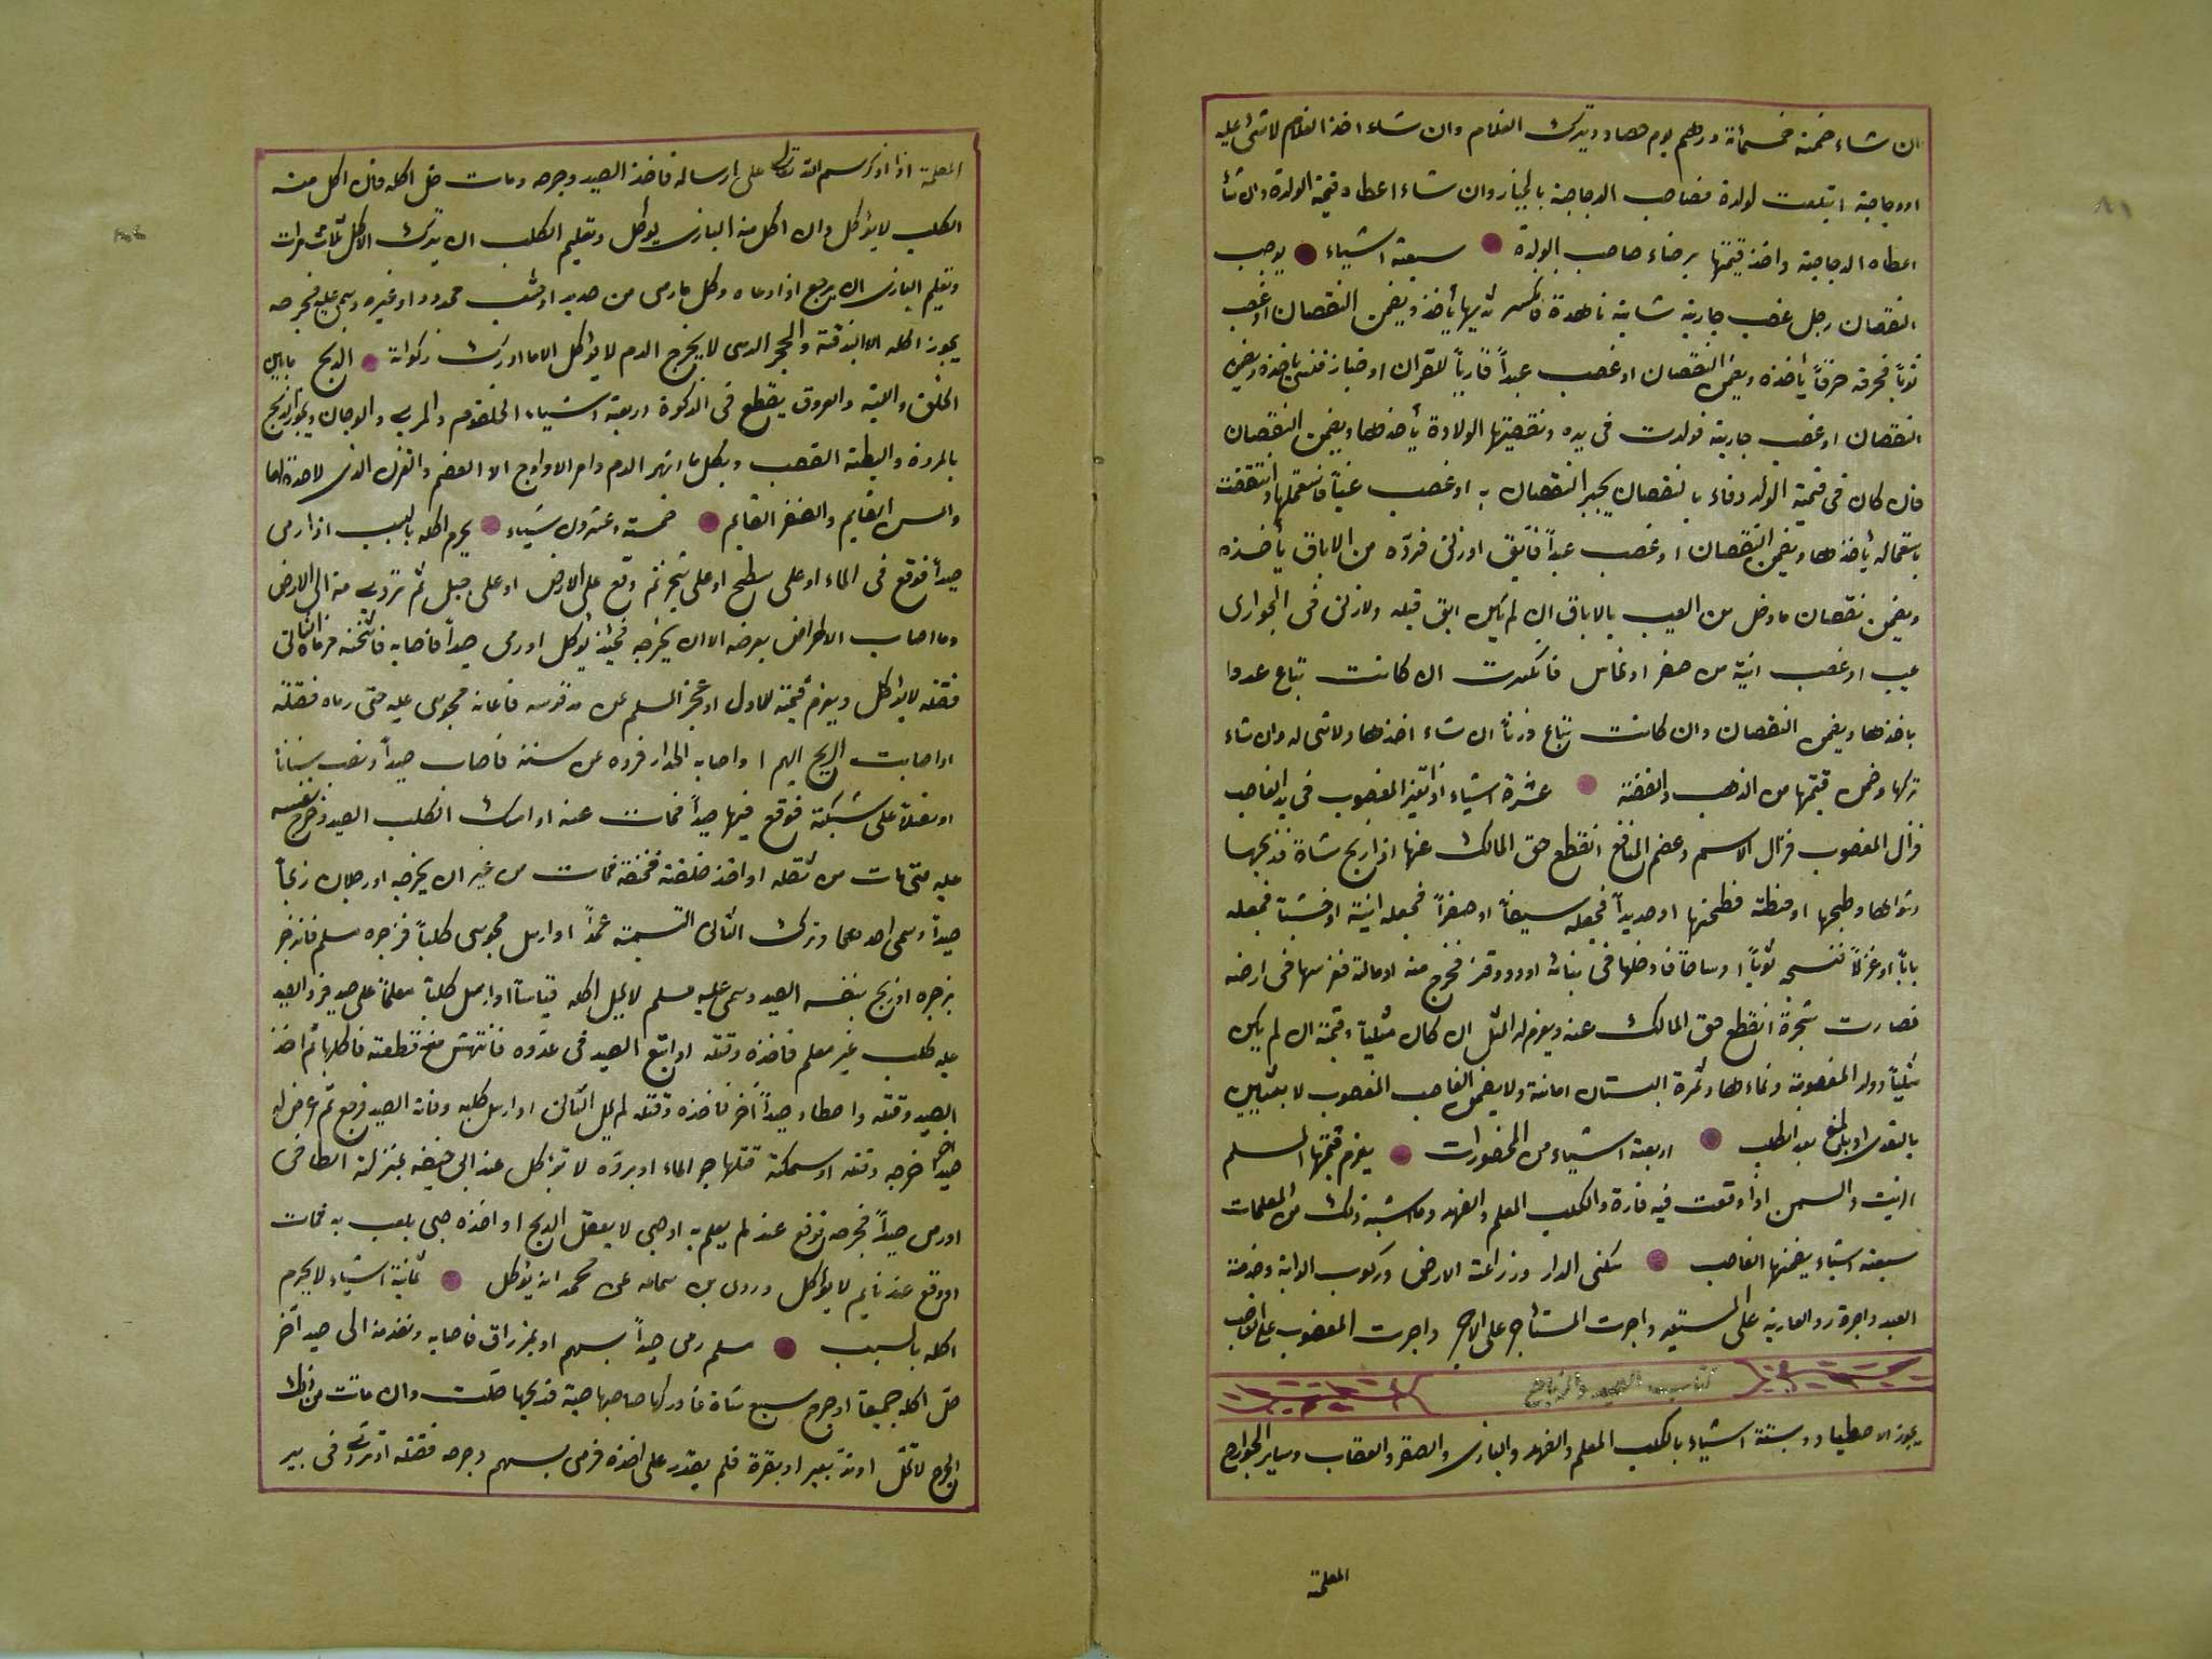 ان شاء ضمنه خمسمأة درهم يوم صاد ويترك الغلام وان شاء اخذ الغلام لا شئ عليه
او دجاجة ابتلعت لولدة فصاحب الدجاجة بالخيار وان شاء اعطاه قيمة الولدة وان شأ
اعطاه الدجاجة واخذ قيمتها برضاء صاحب الولدة سبعة اشياء يوجب
النقصان رجل غصب جارية شابة ناهدة فانكسر ثديها يأخذ ويضمن النقصان او غصب
ثوباً فخرقه خرقاً يأخذه ويضمن النقصان او غصب عبداً قارياً للقرآن او خبازا فنسى ياخذه ويضمن
النقصان او غصب جارية فولدت فى يده ونقصتها الولادة يأخذها ويضمن النقصان
فان كان فى قيمة الولد وفاء بالنقصان يجبر النقصان به او غصب فاستعملها وانتقصت
باستعماله يأخذها ويضمن النقصان او غصب عبداً فابق او زنى فردّه من الاباق يأخذه
ويضمن نقصان ما دخل من العيب بالاباق ان لم يكن ابق قبله ولا زنى فى الجوارى
عيب او غصب انية من صفر او نحاس فانكسرت ان كانت تباع عددا
ياخذها ويضمن النقصان وان كانت تباع وزناً ان شاء اخذها ولا شى له وان شاء
تركها وضمن قيمتها من الذهب والفضة عشرة اشياء اذا تغير المغصوب فى يد الغاصب
فزال المغصوب فزال الاسم وعضم المنافع انقطع حق المالك عنها اذا ذبح شاة فذبحها
وشواها وطبخها او حنطة فطحنها او حديداً فجعله سيفاً او صفراً فجعله انية او خشباً فجعله
باباً او غزلاً فنسجه ثوباً او ساحة فادخلها فى بنائه او دود وقز فخرج منه او مالة فغرسها فى ارضه
فصارت شجرة انقطع حق المالك عنه ويغرم له المثل ان كان مثلياً وقيمة ان لم يكن
مثلياً وولد المغصوبة ونماءها وثمرة البستان امانة ولا يضمن الغاصب المغصوب لا بمعنيين
بالتعدى او بالمنع بعد الطلب اربعة اشياء من المحضورات يغرم قيمتها المسلم
الزيت والسمن اذا وقعت فيه فارة والكلب المعلم والفهد وما اشبه ذلك من المعلمات
سبعة اشياء يضمنها الغاصب سكنى الدار وزراعة الارض وركوب الدابة وخدمة
العبد واجرة رد العارية على المستعير واجرت المستأجر على الاجر واجرت المغصوب على الغاصب
كتاب الصيد والذبايح
يجوز الاصطياد وبستة اشياء بالكلب المعلم والفهد والبازى والصقر والعقاب وساير الجوارح
المعلمة
المعلمة اذا اذكر اسم الله تعالى على ارساله فاخذ الصيد وجرحه ومات حل اكله فان اكل منه
الكلب لا يؤكل وان اكل منه البازى يوكل وتعليم الكلب ان يترك الاكل ثلاث مرات
وتعليم البازى ان يرجع اذا دعاه وكل ما رمى من حديد او خشب محدود او غيره وسمى عليه فجرحه
يجوز اكله الا البندقة والحجر الذى لا يخرج الدم لا يؤكل الا ما ادرك زكوانة الذبح ما بين
الحلق والبة والعروق يقطع فى الذكوة اربعة اشياء الحلقوم والمرى والودجان ويجوز الذبح
بالمروة والبطة القصب وبكل ما انهر الدم وامر الاوداج الا العضم والقزل الذى لا حدة لها
والسن القايم والضفر القايم خمسة وعشرون شياء يحرم اكله بالسبب اذا رمى
صيداً فوقع فى الماء او على سطح او على شجر ثم وقع على الارض او على جبل ثم تردى منه الى الارض
وما اصاب الاطراف بعرضه الا ان يجرحه فحينئذ يؤكل او رمى صيداً فاصابه فاثخنه فرماه الثانى
فقتله لا يؤكل ويغرم قيمته للاول او عجز المسلم عن مد قوسه فاعانه مجوسى عليه حتى رماه فقتله
او اصابت الريح السهم او اصابه الجدار فرده عن سننه فاصاب صيداً ونصب سناناً
او نصلاً على شبكة فوقع فيها صيداً فمات عنه او امسك الكلب الصيد وخرج بنفسه
عليه حتى مات من ثقله او اخذ حلقه فخنقه فمات من غير ان يجرحه او رجلان رمياً
صيداً وسمى احدهما وترك الثانى التسمية عمداً او ارسل مجوسى كلباً فزجره مسلم فانزجر
بزجره او ذبح بنفسه الصيد وسمى عليه مسلم لا يحل اكله قياساً او ارسل كلباً معلماً على صيد فرد الصيد
عليه كلب غير معلم فاخذه وقتله او اتبع الصيد فى غدوه فانتهش منه قطعته فاكلها ثم اخذ
الصيد وقتله واصطاد صيداً آخر فاخذه وقتله لم يحل الثانى او ارسل كلبه وفاته الصيد فرجع ثم عرض له
صيداً آخر جرحه وقتله او سمكة قتلها حر الماء او برده لا تؤكل عند ابى حنيفه بمنزلة الطافى
او رمى صيداً فجرحه فوقع عند لم يعلم به او صبى لا يعقل الذبح او اخذه صبى يلعب به فمات
او وقع عند نايم لا يؤكل وروى بن سماعه عن محمد انه يؤكل ثمانية اشياء لا يحرم
اكله بالسبب مسلم رمى صيداً بسهم او بمزراق فاصابه ونفد منه الى صيد آخر
حلّ اكله جميعاً او جرح سبع شاة فادركها صاحبها حية فذبحها حلت وان ماتت من ذلك
الجرح لا تحل او ندّ بعير او بقرة فلم يقدر على اخذه فرمى بسهم وجرحه فقتله او تردى فى بير